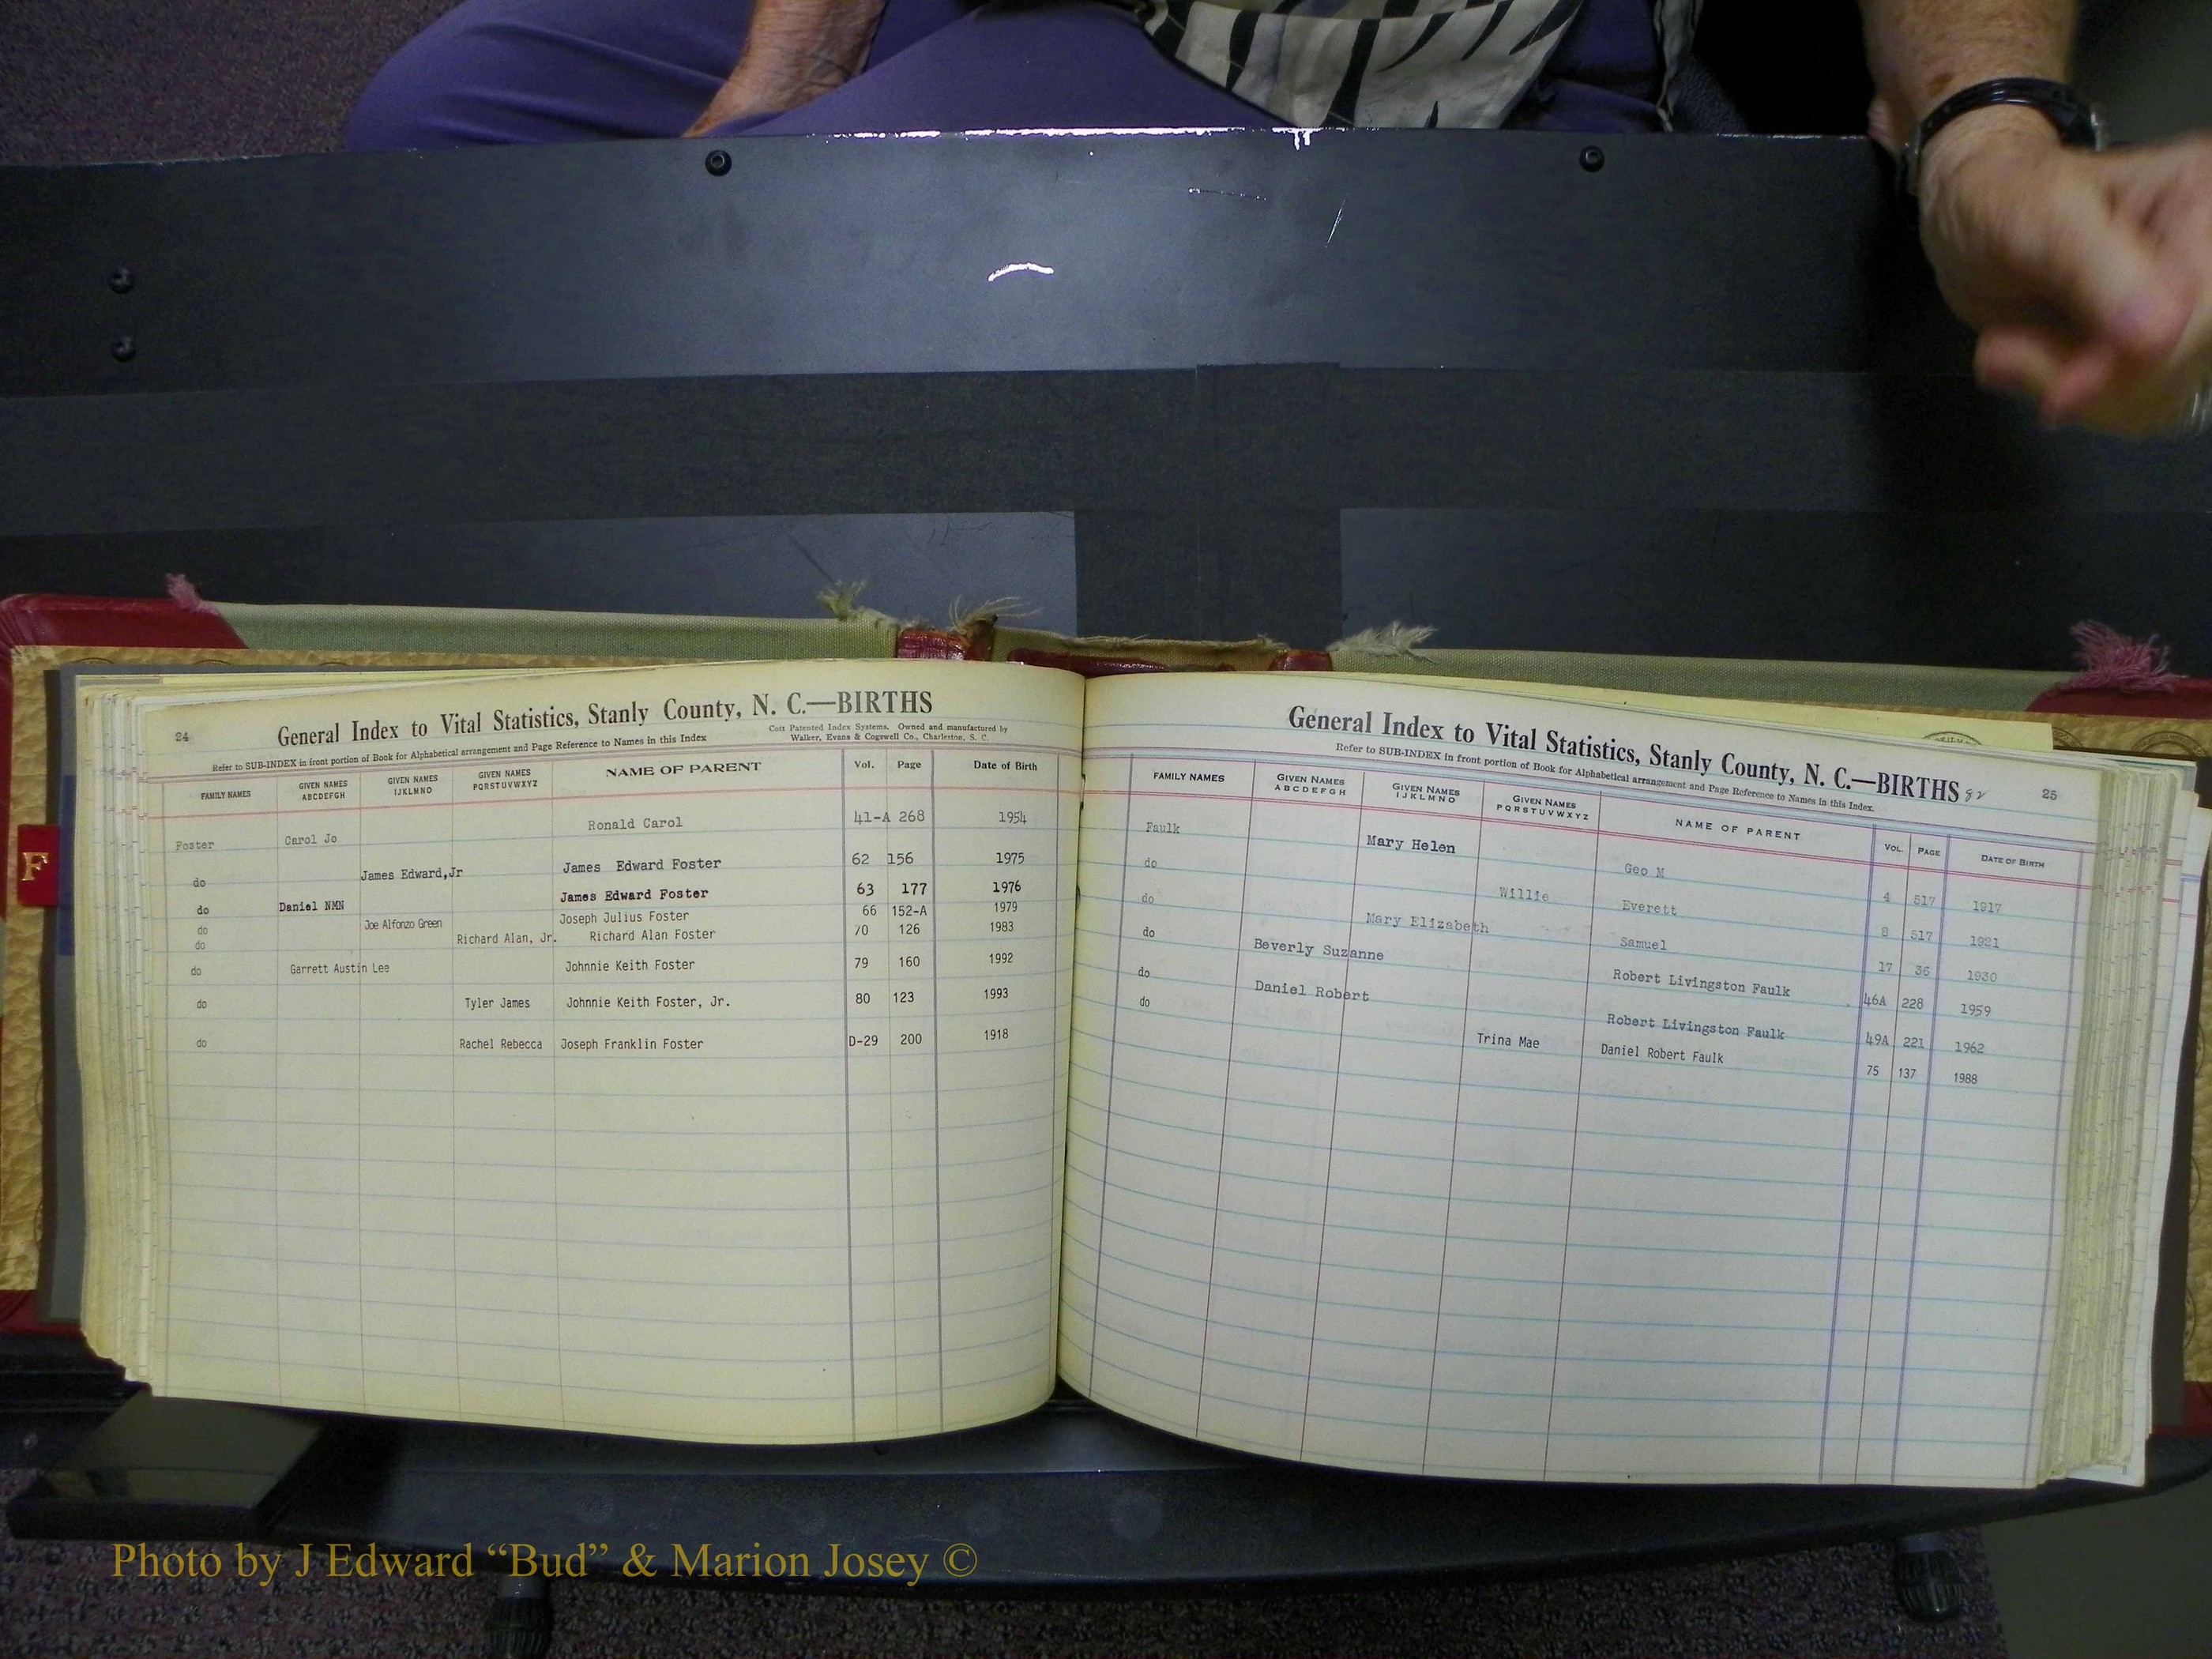 24
General Index to Vital Statistics, Stanly County, N. C.—BIRTHS
Refer to SUB-INDEX in front portion of Book for Alphabetical arrangement and Page Reference to Names in this Index
Cott Patented Index Systems. Owned and manufactured by
Walker, Evans & Cogswell Co., Charleston, S. C.
FAMILY NAMES GIVEN NAMES ABCDEFGH GIVEN NAMES IJKLMNO GIVEN NAMES PQRSTUVWXYZ NAME OF PARENT Vol. Page Date of Birth
Foster Carol Jo Ronald Carol 41-A 268 1954
do James Edward,Jr James Edward Foster 62 156 1975
do Daniel NMN James Edward Foster 63 177 1976
do Joe Alfonzo Green Joseph Julius Foster 66 152-A 1979
do Richard Alan, Jr. Richard Alan Foster 70 126 1983
do Garrett Austin Lee Johnnie Keith Foster 79 160 1992
do Tyler James Johnnie Keith Foster, Jr. 80 123 1993
do Rachel Rebecca Joseph Franklin Foster D-29 200 1918
F
General Index to Vital Statistics, Stanly County, N. C.—BIRTHS 82 25
Refer to SUB-INDEX in front portion of Book for Alphabetical arrangement and Page Reference to Names in this Index.
FAMILY NAMES GIVEN NAMES ABCDEFGH GIVEN NAMES IJKLMNO GIVEN NAMES PQRSTUVWXYZ NAME OF PARENT VOL. PAGE DATE OF BIRTH
Faulk Mary Helen Geo M 4 517 1917
do Willie Everett 8 517 1921
do Mary Elizabeth Samuel 17 36 1930
do Beverly Suzanne Robert Livingston Faulk 46A 228 1959
do Daniel Robert Robert Livingston Faulk 49A 221 1962
do Trina Mae Daniel Robert Faulk 75 137 1988
Photo by J Edward “Bud” & Marion Josey ©